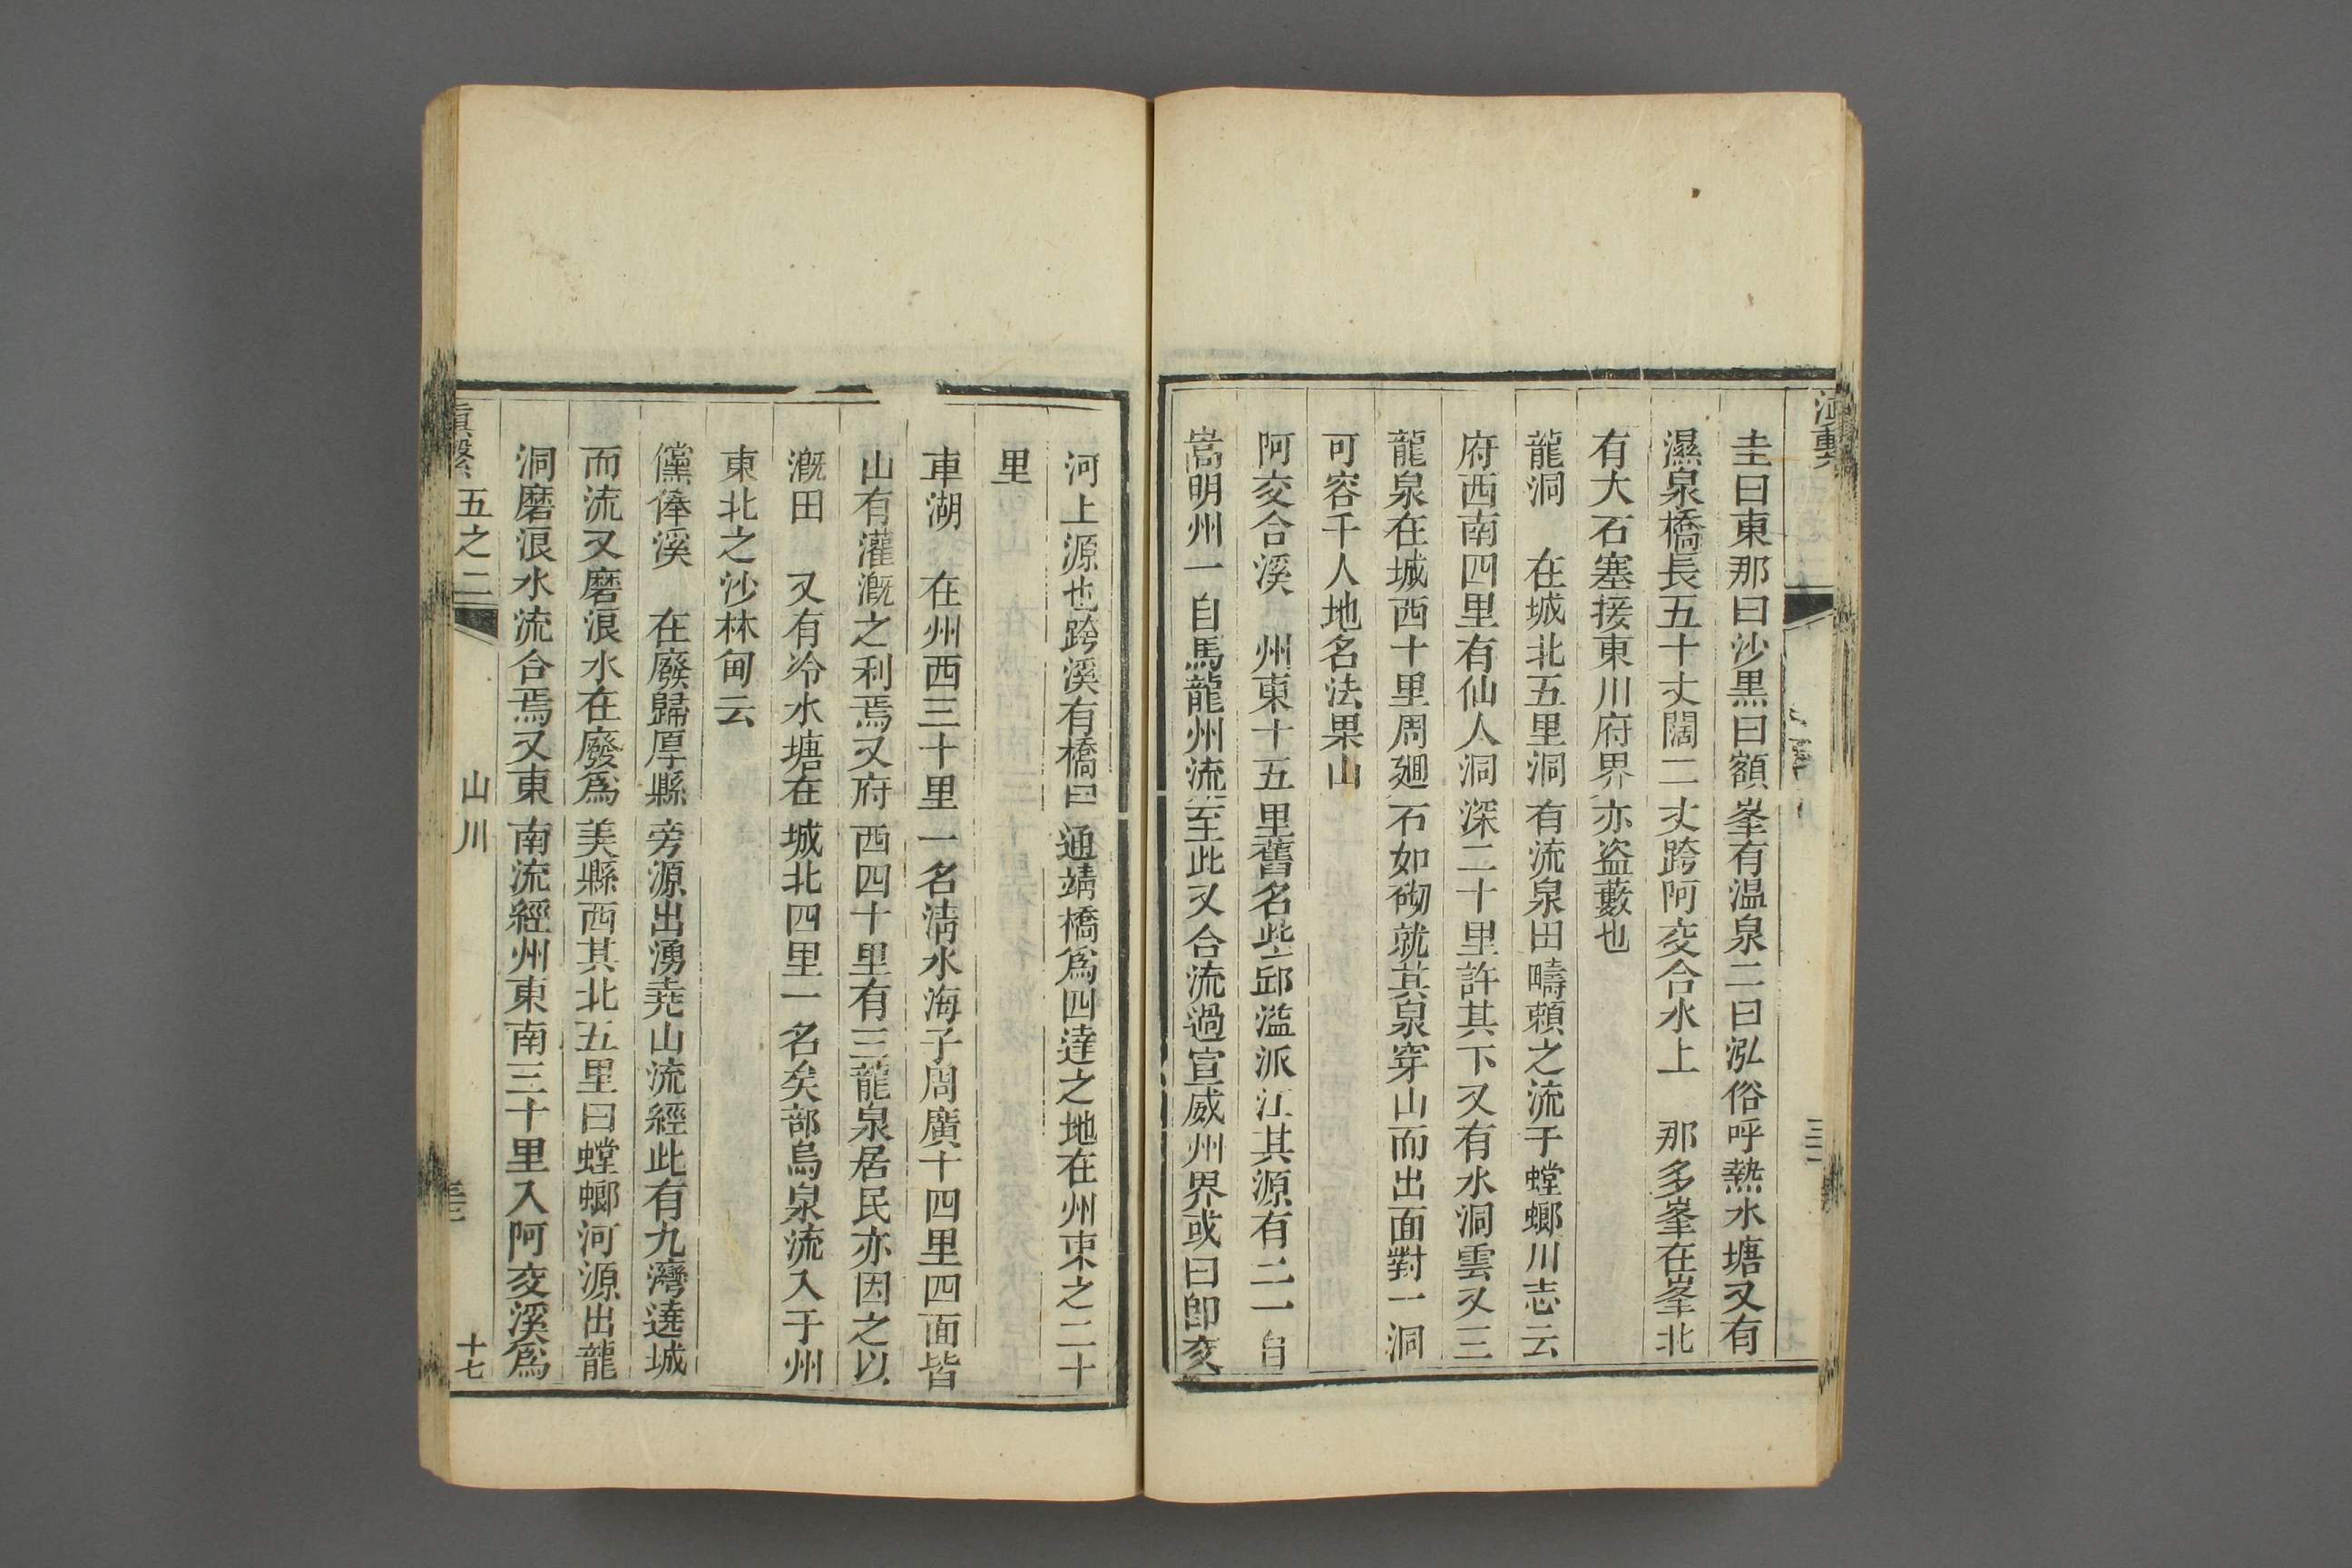 圭曰東那曰沙黒曰額峯有温泉二曰泓俗呼熱水塘又有
濕泉橋長五十丈闊二丈跨阿交合水上　那多峯在峯北
有大石塞接東川府界亦盗藪也
龍洞　在城北五里洞有流泉田疇頼之流于螳螂川志云
府西南四里有仙人洞深二十里許其下又有水洞雲又三
龍泉在城西十里周廻石如砌就其泉穿山而出面對一洞
可容千人地名法果山
阿交合溪　州東十五里舊名些邱溢派江其源有二一自
嵩明州一自馬龍州流至此又合流過宣威州界或曰卽交
河上源也跨溪有橋曰通靖橋爲四達之地在州東之二十
里
車湖　在州西三十里一名清水海子周廣十四里四面皆
山有灌漑之利焉又府西四十里有三龍泉居民亦因之以
漑田　又有冷水塘在城北四里一名矣部烏泉流入于州
東北之沙林甸云
儻俸溪　在廢歸厚縣旁源出湧堯山流經此有九灣遶城
而流又磨浪水在廢爲美縣西其北五里曰螳螂河源出龍
洞磨浪水流合焉又東南流經州東南三十里入阿交溪爲
滇繫　五之二　山川　十七